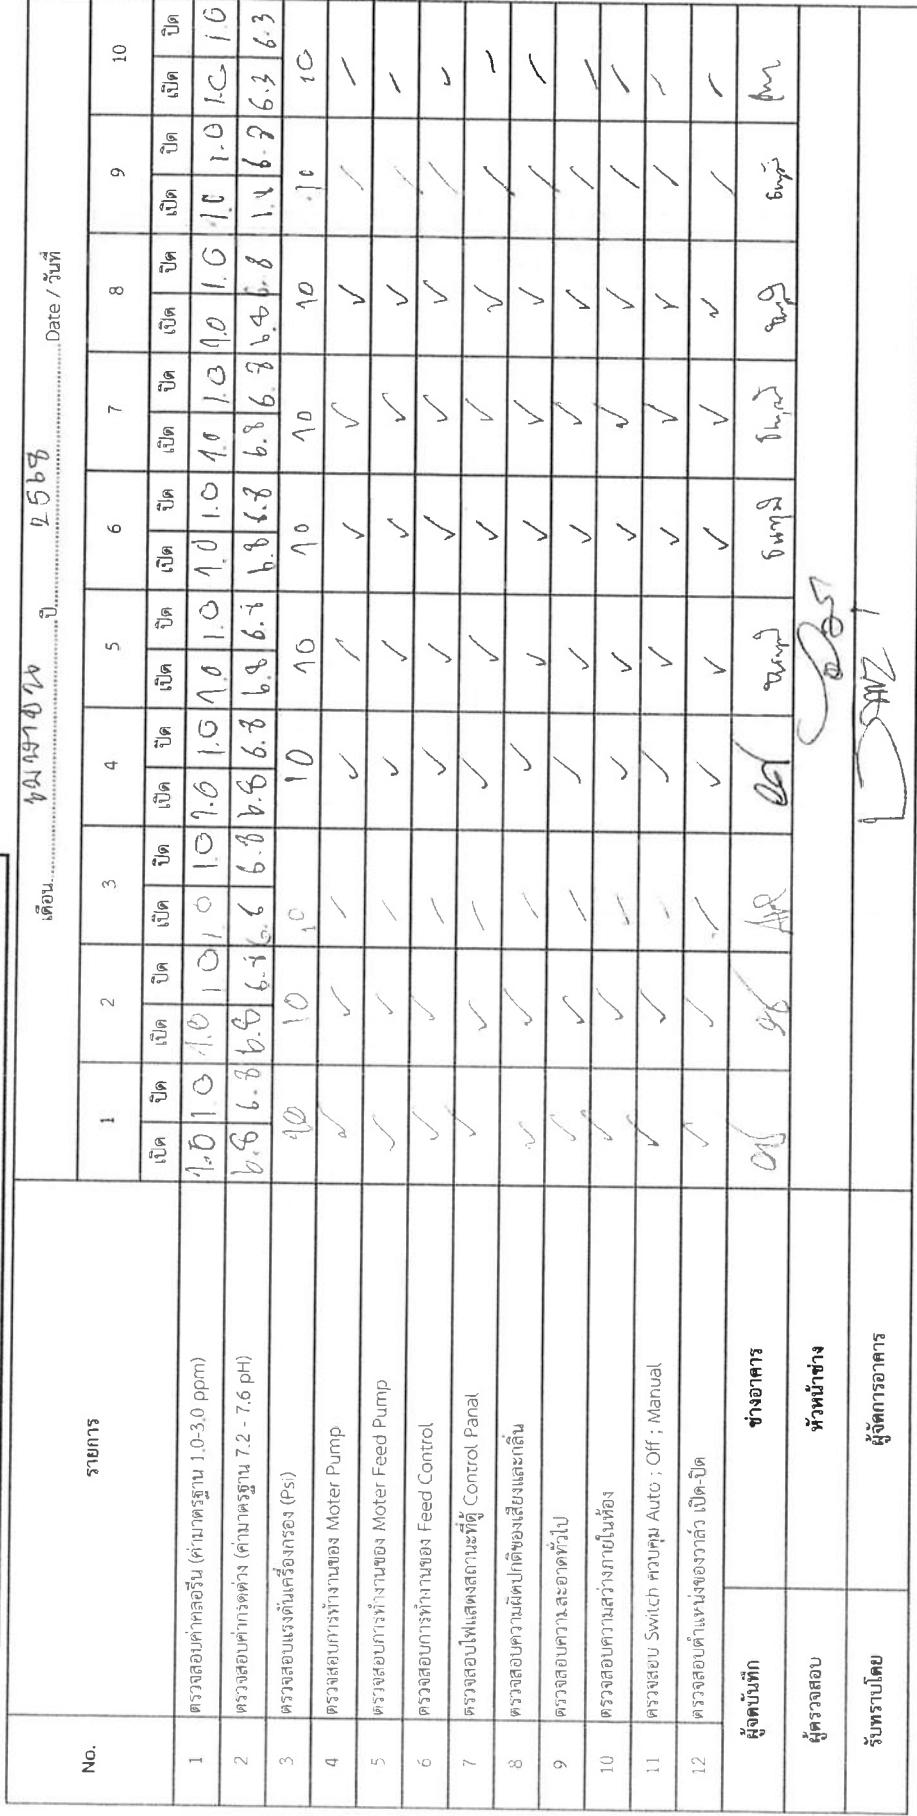 เดือน เมษายน ปี 2568 Date / วันที่
No. รายการ 1 2 3 4 5 6 7 8 9 10
เปิด ปิด เปิด ปิด เปิด ปิด เปิด ปิด เปิด ปิด เปิด ปิด เปิด ปิด เปิด ปิด เปิด ปิด เปิด ปิด
1 ตรวจสอบค่าคลอรีน (ค่ามาตรฐาน 1.0-3.0 ppm) 1.0 1.0 1.0 1.0 1.0 1.0 1.0 1.0 1.0 1.0 1.0 1.0 1.0 1.0 1.0 1.0 1.0 1.0 1.0 1.0
2 ตรวจสอบค่ากรดด่าง (ค่ามาตรฐาน 7.2 - 7.6 pH) 6.8 6.8 6.8 6.8 6.8 6.8 6.8 6.8 6.8 6.8 6.8 6.8 6.8 6.8 6.8 6.3 6.3
3 ตรวจสอบแรงดันเครื่องกรอง (Psi) 10 10 10 10 10 10 10 10 10 10
4 ตรวจสอบการทำงานของ Moter Pump ✓ ✓ / ✓ ✓ ✓ ✓ ✓ / /
5 ตรวจสอบการทำงานของ Moter Feed Pump ✓ ✓ / ✓ ✓ ✓ ✓ ✓ / /
6 ตรวจสอบการทำงานของ Feed Control ✓ ✓ / ✓ ✓ ✓ ✓ ✓ / ✓
7 ตรวจสอบไฟแสดงสถานะที่ตู้ Control Panal ✓ ✓ / ✓ ✓ ✓ ✓ ✓ / /
8 ตรวจสอบความผิดปกติของเสียงและกลิ่น ✓ ✓ / ✓ ✓ ✓ ✓ ✓ / /
9 ตรวจสอบความสะอาดทั่วไป ✓ ✓ / ✓ ✓ ✓ ✓ ✓ / /
10 ตรวจสอบความสว่างภายในห้อง ✓ ✓ / ✓ ✓ ✓ ✓ ✓ / /
11 ตรวจสอบ Switch ควบคุม Auto ; Off ; Manual ✓ ✓ / ✓ ✓ ✓ ✓ ✓ / /
12 ตรวจสอบตำแหน่งของวาล์ว เปิด-ปิด ✓ ✓ / ✓ ✓ ✓ ✓ ✓ / /
ผู้จดบันทึก ช่างอาคาร
ผู้ตรวจสอบ หัวหน้าช่าง
รับทราบโดย ผู้จัดการอาคาร